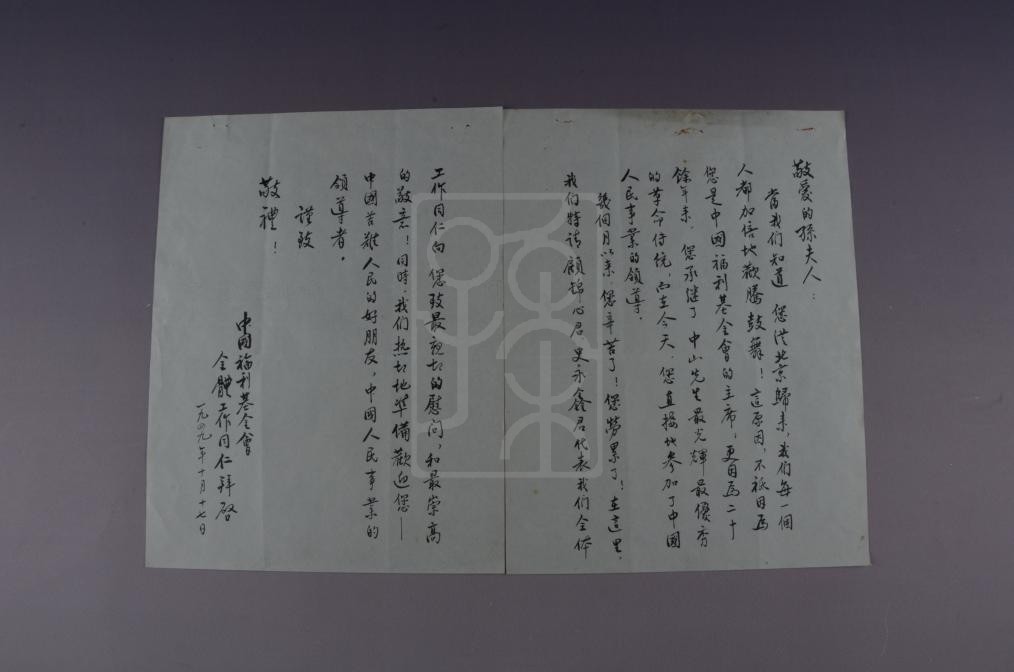 敬爱的孫夫人：
當我们知道 您從北京歸来，我们每一個
人都加倍地歡騰鼓舞！這原因，不祗因爲
您是中國福利基金會的主席，更因爲二十
餘年来，您承继了 中山先生最光輝最優秀
的革命传统，而在今天，您直接地参加了中國
人民事業的領導。
幾個月以来，您辛苦了！您勞累了！在這里，
我们特請顧锦心君史永鑫君代表我们全体
工作同仁向 您致最親切的慰问，和最崇高
的敬意！同時，我们热切地準備歡迎您——
中國苦难人民的好朋友，中國人民事業的
領導者。
謹致
敬禮！
中國福利基金會
全體工作同仁拜啓
一九四九年十月十七日